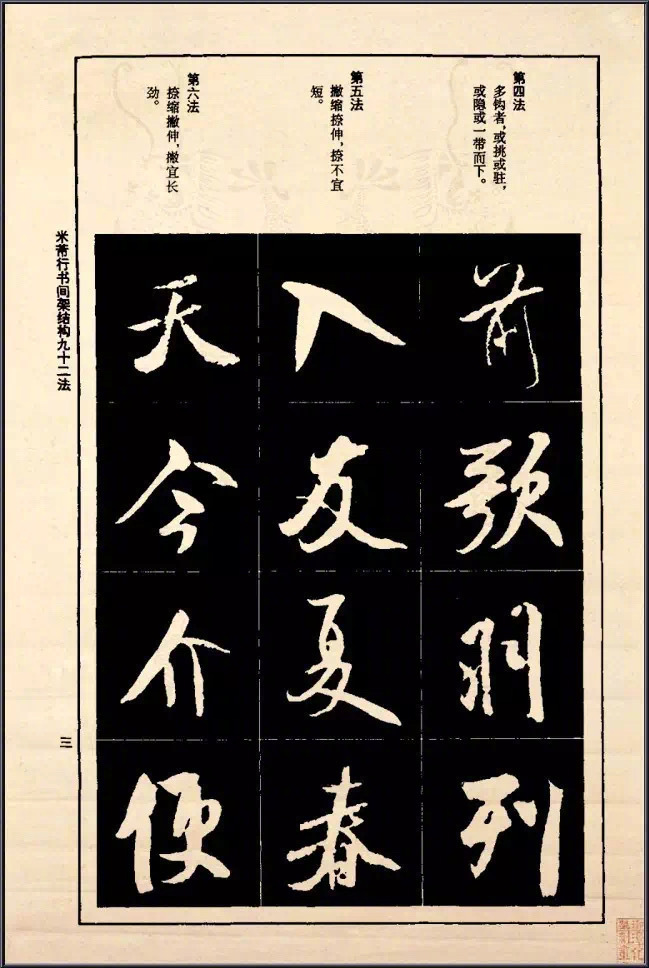 第四法
多钩者，或挑或驻，
或隐或一带而下。
第五法
撇缩捺伸，捺不宜
短。
第六法
捺缩撇伸，撇宜长
劲。
前歌羽列
入友夏春
天今介便
米芾行书间架结构九十二法
三